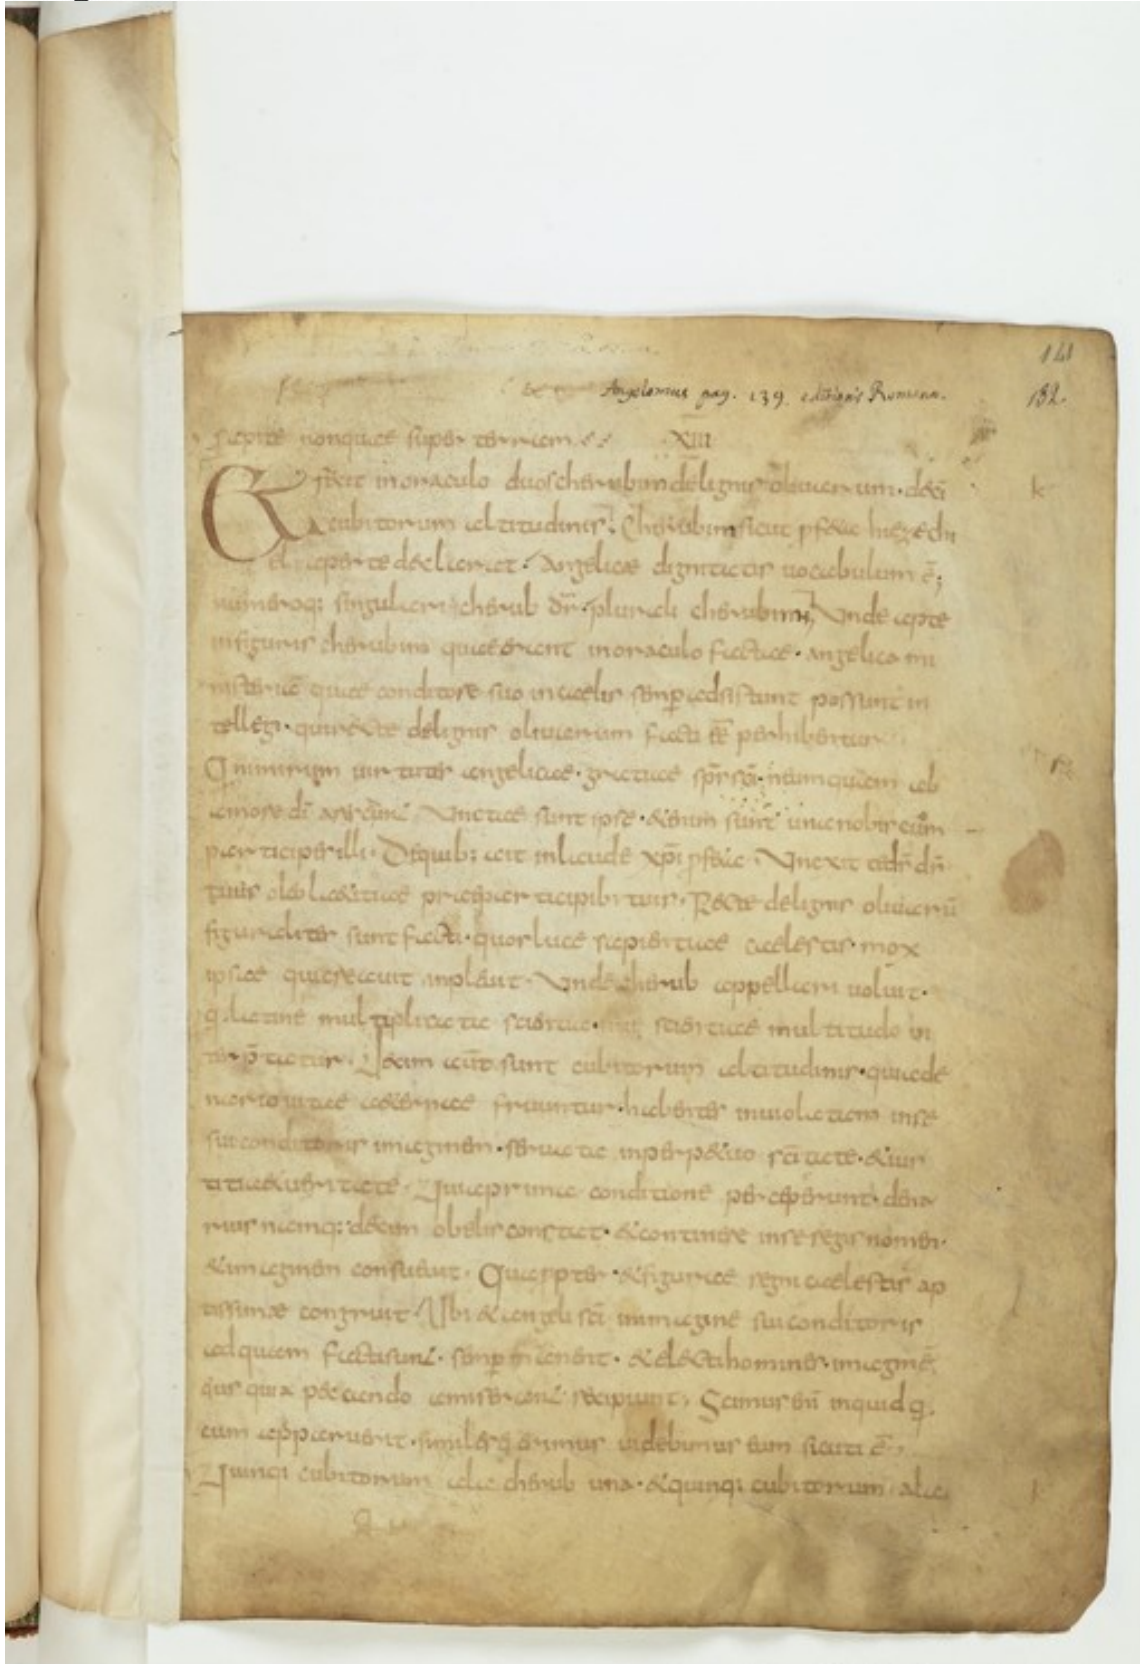 141
Angelomus pag. 139. editionis Romanae. 182.
sapit& nonquae super terram. XIII
Et fecit in oraculo duos cherubim de lignis olivarum. decē k
cubitorum altitudinis. Cherubim sicut prof&a hiezechi
el aperte declarat. Angelicae dignitatis uocabulum ē;
numeroq; singulari cherub dr̄. plurali cherubim; Unde apte
in figuris cherubim quae erant in oraculo factae. angelica mi
nisteria quae conditore suo in caelis semp adsistunt possunt in
tellegi. qui recte de lignis oliuarum facti ēē perhibentur
Q nimirum uirtutes angelicae. gratiae sp̄s sc̄i. numquam ab
amore dī Unctae sunt ipse. &enim sunt unct nobis cum
participes illi. De quib; ait in laude xp̄i prof&a. Unexit te ds̄ ds̄
tuus oleo laetitiae prae participib; tuis. Recte de lignis oliuarū
figuraliter sunt facti. quos luce sapientiae caelestis. mox
ipsae quas creauit inpleuit. Unde cherub appellari uoluit.
q. latine multiplicata scientia. scientiae multitudo in
terp̄tatur. Decem aut̄ sunt cubitorum altitudinis. quia de
nario uitae aeternae fruuntur. habentes inuiolatam in se
sui conditoris imaginem. seruata in perp&uo sc̄itate. & ius
titia & ueritate. Qua prima conditione perceperunt. dena
rius namq; decem obolis constat. & continere in se regis nomen.
& imaginem consueuit. Quapp̄ter. & figurae regni caelestis ap
tissimae congruit. Ubi & angeli sc̄i in imagine sui conditoris
ad quem facti sunt. semp manent. & electi homines. imaginē
eius qua peccando amiserant recipiunt. Scimus enī inquid q.
cum apparuerit. similes ei erimus uidebimus eum sicuti ē.
Quinq; cubitorum ala cherub una. & quinq; cubitorum ala l